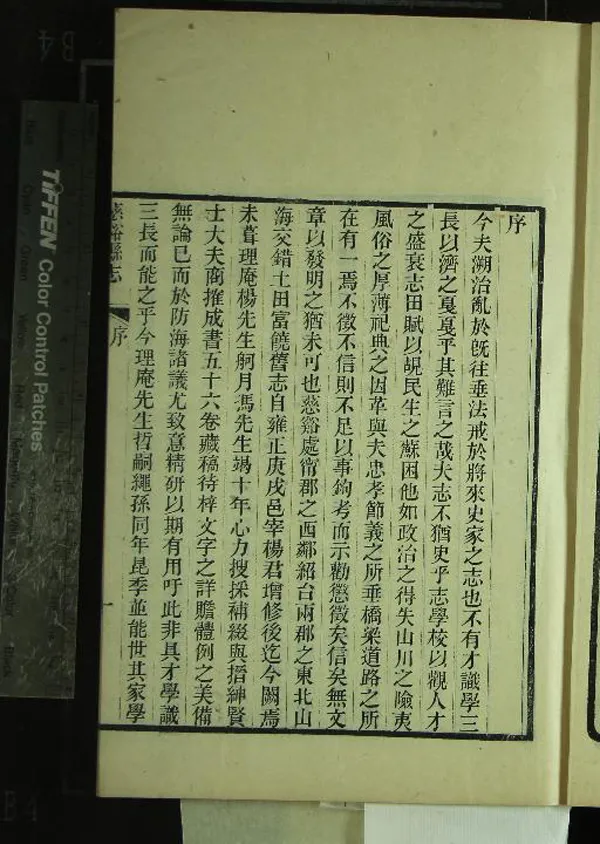 序
今夫溯治亂於旣往垂法戒於將來史家之志也不有才識學三
長以濟之戛戛乎其難言之哉夫志不猶史乎志學校以觀人才
之盛衰志田賦以覘民生之蘇困他如政治之得失山川之險夷
風俗之厚薄祀典之因革與夫忠孝節義之所垂橋梁道路之所
在有一焉不徵不信則不足以事鉤考而示勸懲徵矣信矣無文
章以發明之猶未可也慈谿處甯郡之西鄰紹台兩郡之東北山
海交錯土田富饒舊志自雍正庚戌邑宰楊君增修後迄今闕焉
未葺理庵楊先生舸月馮先生竭十年心力搜採補綴與搢紳賢
士大夫商搉成書五十六卷藏稿待梓文字之詳贍體例之美備
無論已而於防海諸議尤致意精研以期有用吁此非具才學識
三長而能之乎今理庵先生哲嗣繩孫同年昆季並能世其家學
慈谿縣志
序
一
TIFFEN Color Control Patches
B4
B4